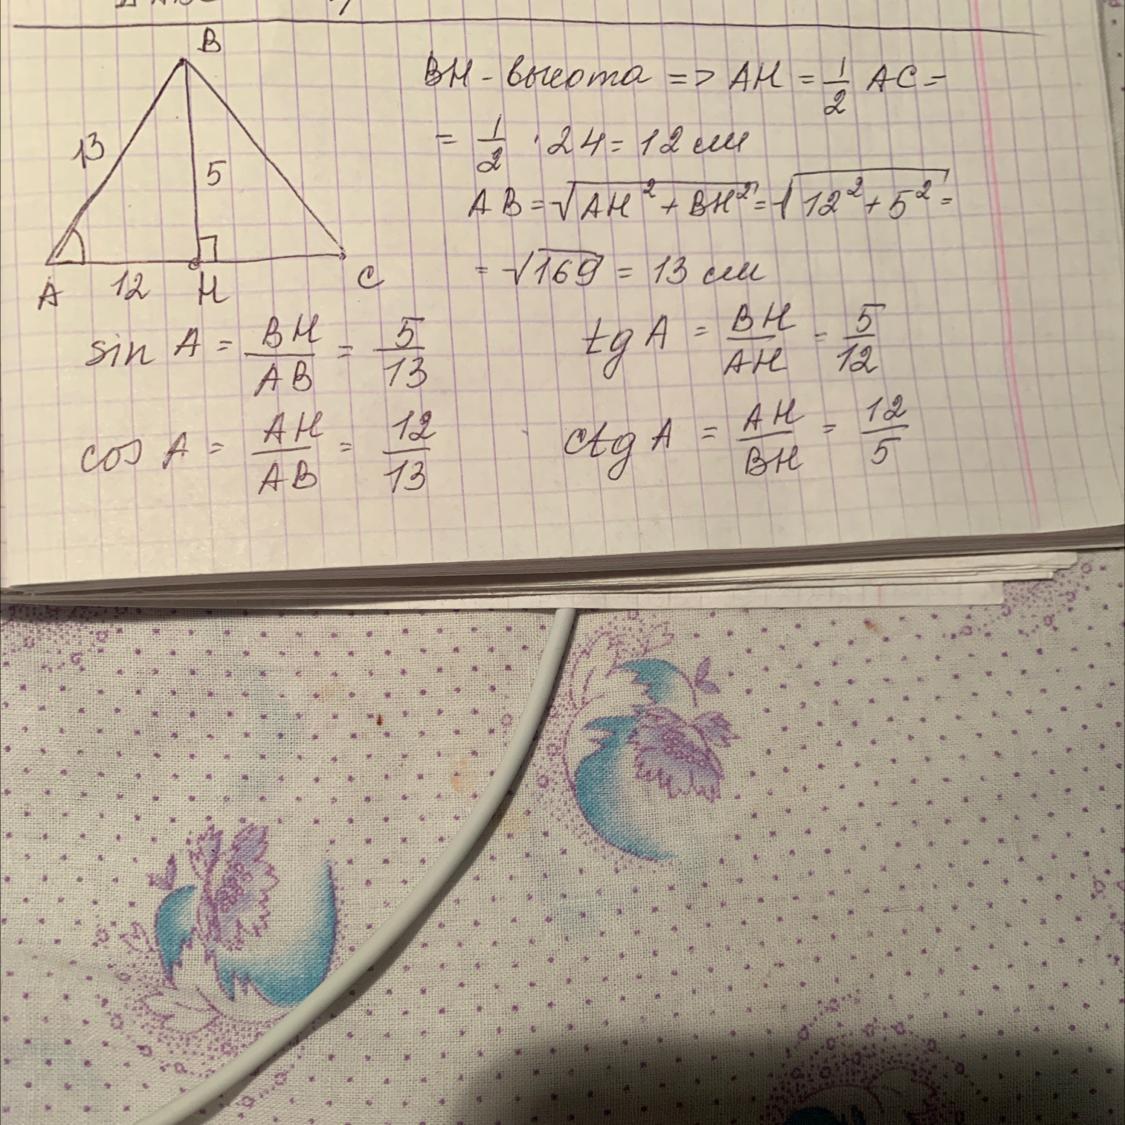 B
13
5
A 12 H C
BH - высота => AH = 1/2 AC =
= 1/2 · 24 = 12 см
AB = √AH² + BH² = √12² + 5² =
= √169 = 13 см
sin A = BH/AB = 5/13
tg A = BH/AH = 5/12
cos A = AH/AB = 12/13
ctg A = AH/BH = 12/5